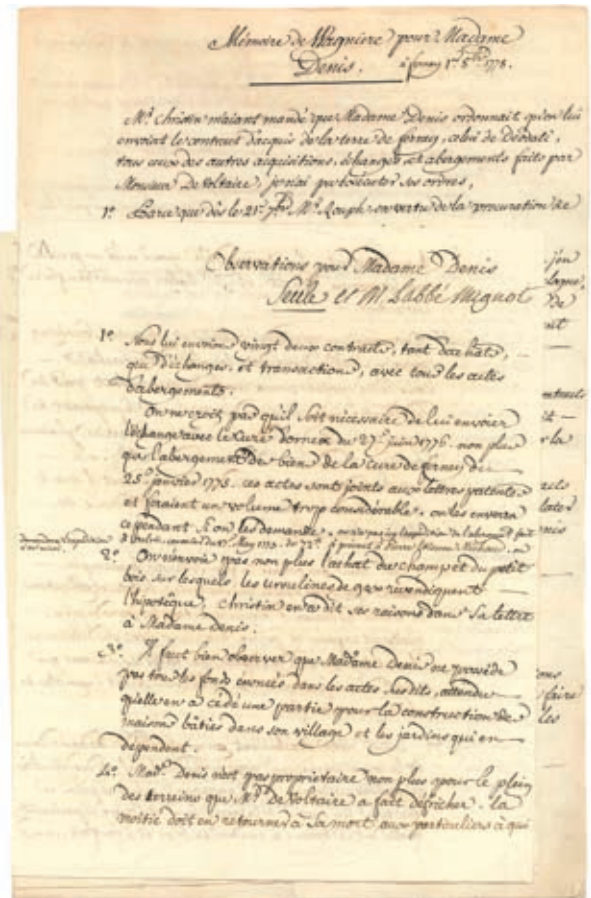 Mémoire de Wagniere pour Madame
Denis. à ferney 1er 8bre 1778.
Mr. Christin m'aiant mandé que Madame Denis ordonnait qu'on lui
envoiat le contract d'acquis de la terre de ferney, celui de Deodati,
tous ceux des autres acquisitions, échanges et abergements faits par
Monsieur de Voltaire, je n'ai pu exécuter ses ordres,
1º. Parce que dès le 21e. 7bre Mr. Rouph en vertu de la procuration de
Observations pour Madame Denis
Seule et M L'abbé Mignot
1º. Nous lui envoions vingt deux contracts, tant d'achats,
que d'échanges, et transactions, avec tous les actes
d'abergements.
On ne croit pas qu'il soit nécessaire de lui envoier
l'échange avec le curé d'ornex du 27e. juin 1776. non plus
que l'abergement des biens de la cure de ferney du
25e. janvier 1775. ces actes sont joints aux lettres patentes
et feraient un volume trop considérable. on les enverra
cependant si on les demande.
2º. On n'envoie pas non plus l'achat du champ et du petit
bois sur lesquels les urselines de gex revendiquent
l'hipotèque, Christin en a dit ses raisons dans sa lettre
à Madame Denis.
3º. Il faut bien observer que Madame Denis ne possède
pas tous les fonds énoncés dans les actes susdits, attendu
qu'elle en a cédé une partie pour la construction des
maisons bâties dans son village et les jardins qui en
dépendent.
4º. Made. Denis n'est pas propriétaire non plus pour le plein
des terreins que Mr. De Voltaire a fait défricher. la
moitié doit en retourner à sa mort aux particuliers à qui